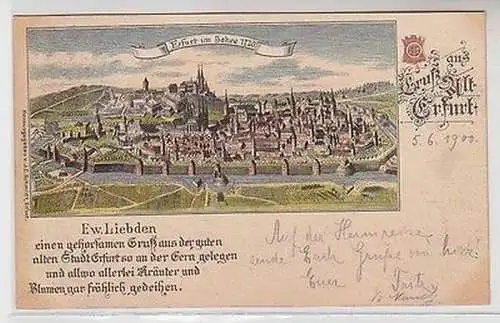 Erfurt im Jahre 1730
Gruß aus
Alt
Erfurt.
5. 6. 1900.
Ew. Liebden
einen gehorsamen Gruß aus der guten
alten Stadt Erfurt so an der Gera gelegen
und allwo allerlei Kräuter und
Blumen gar fröhlich gedeihen.
Auf der Heimreise
sende Euch Grüße von hier
Euer Fritz